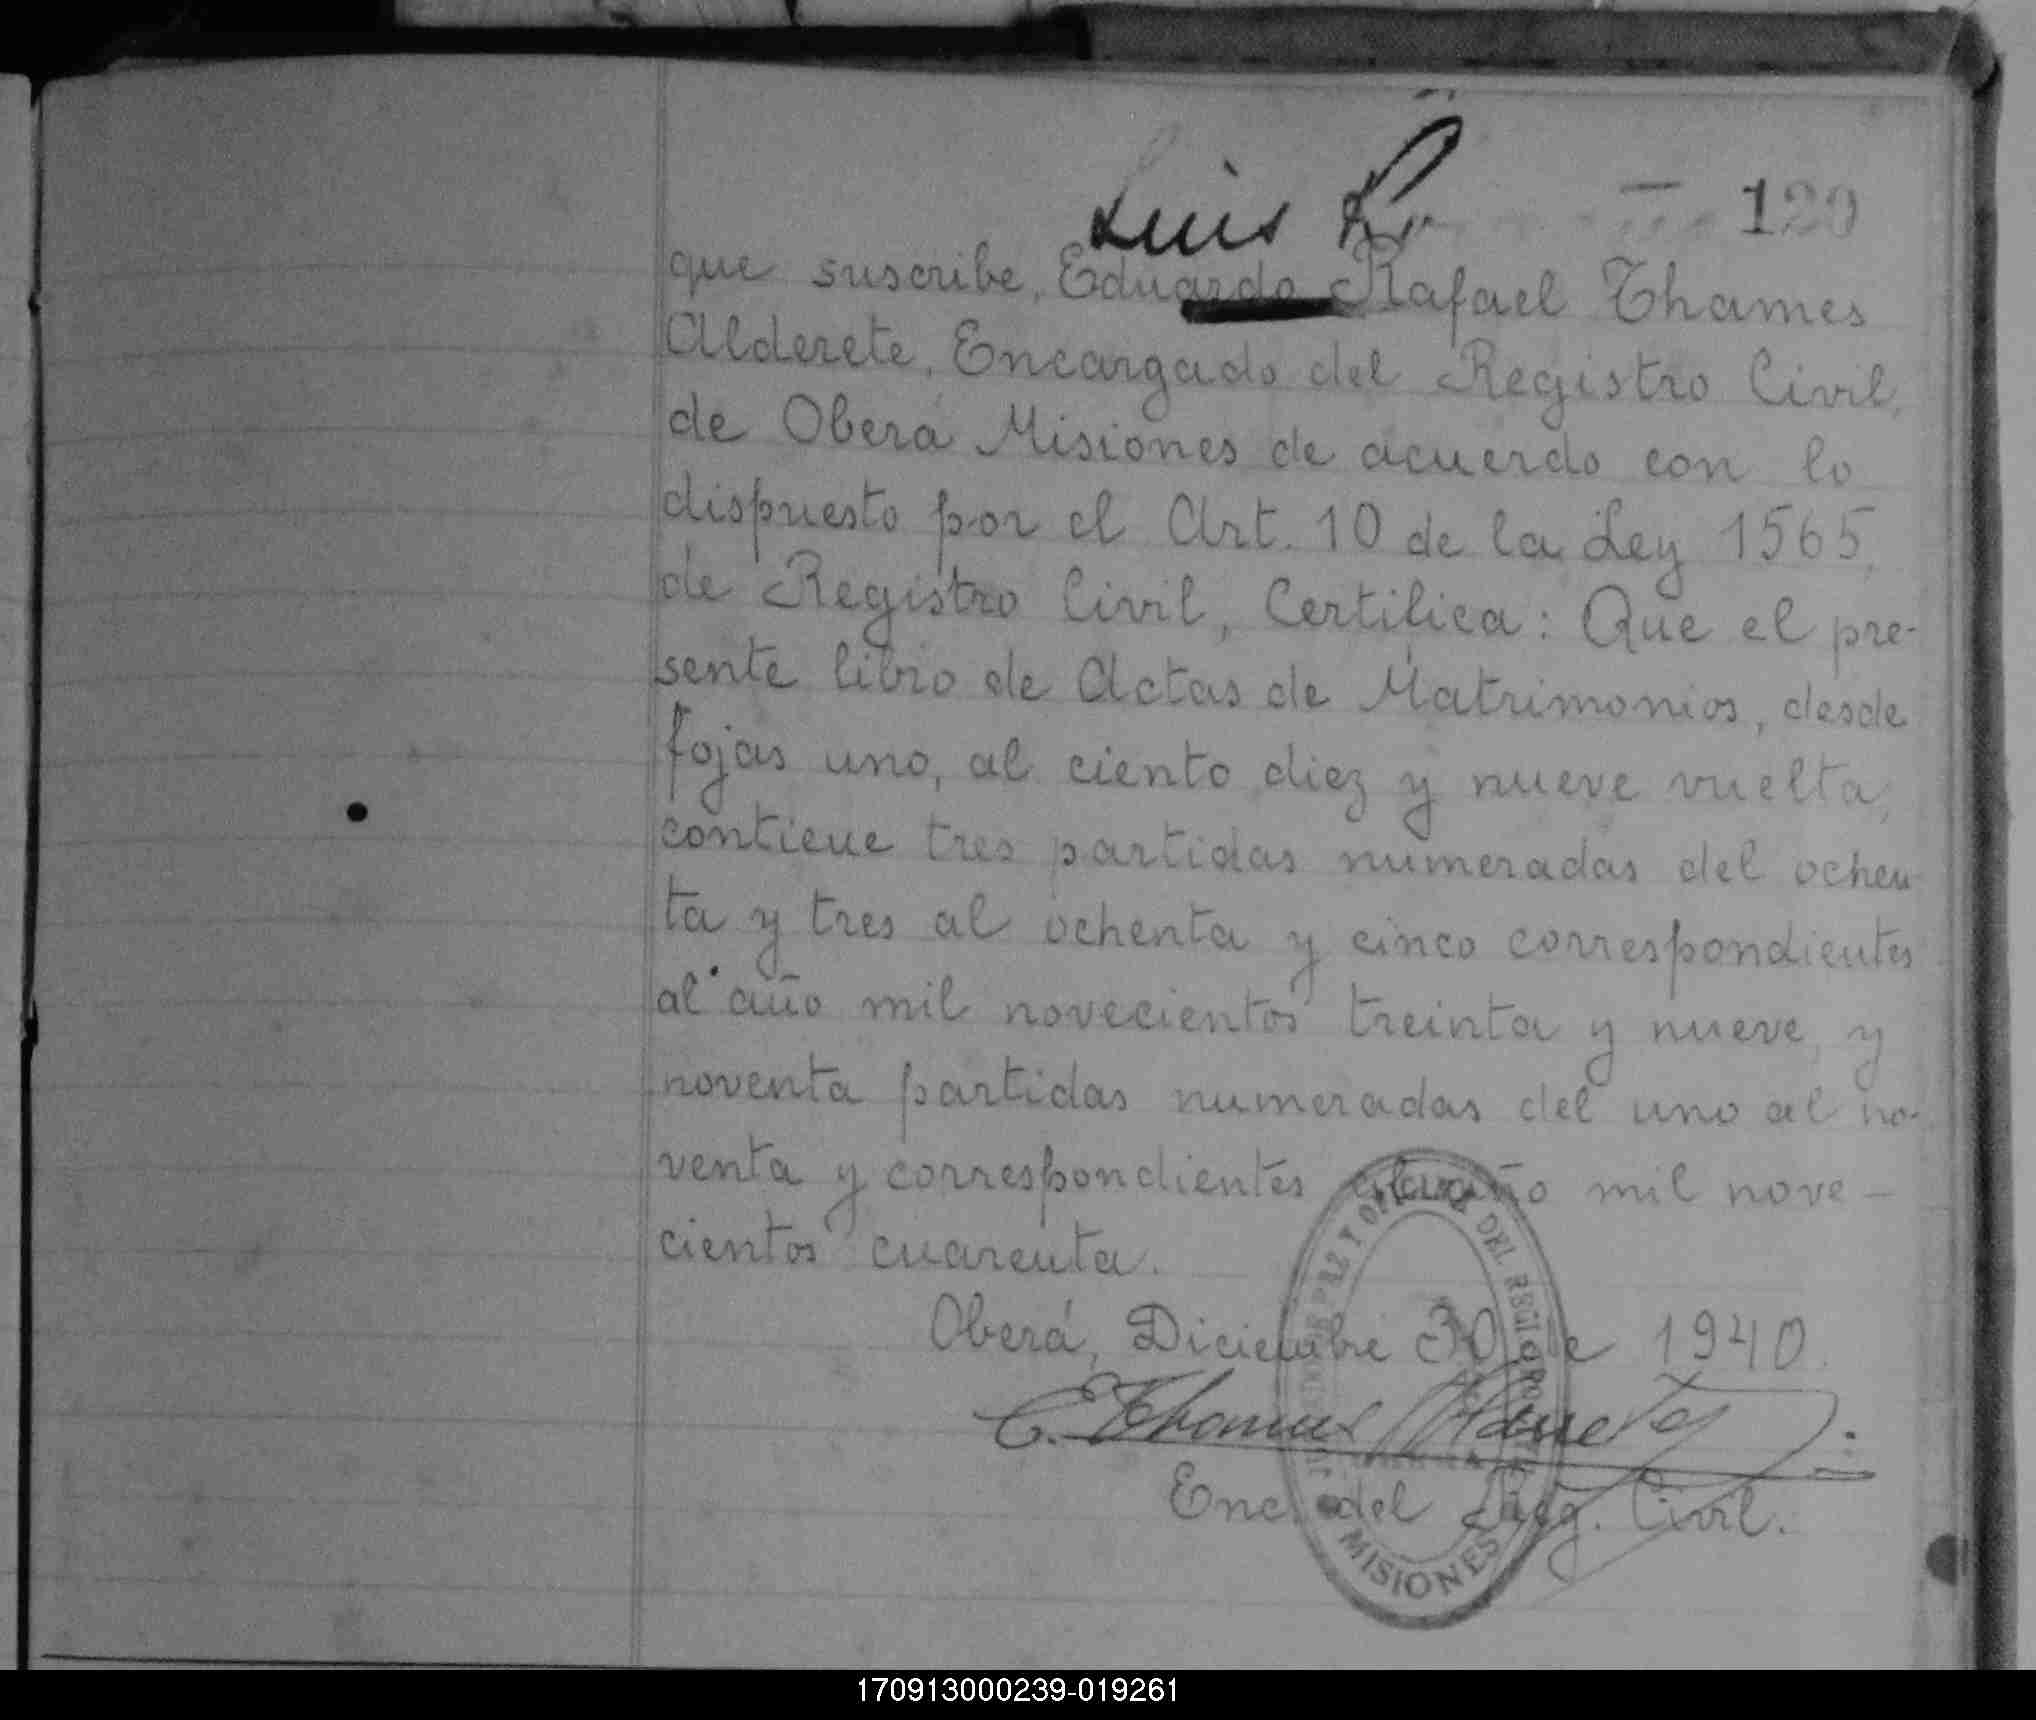 Luis R.
120
que suscribe, Eduardo Rafael Thames
Alderete, Encargado del Registro Civil,
de Oberá Misiones de acuerdo con lo
dispuesto por el Art. 10 de la Ley 1565,
de Registro Civil, Certifica: Que el pre-
sente libro de Actas de Matrimonios, desde
fojas uno, al ciento diez y nueve vuelta,
contiene tres partidas numeradas del ochen
ta y tres al ochenta y cinco correspondientes
al año mil novecientos treinta y nueve, y
noventa partidas numeradas del uno al no-
venta y correspondientes al año mil nove-
cientos cuarenta.
Oberá, Diciembre 30 de 1940.
E. Thames Alderete
Enc. del Reg. Civil.
PAZ Y OFICINA DEL REGISTRO
MISIONES
170913000239-019261